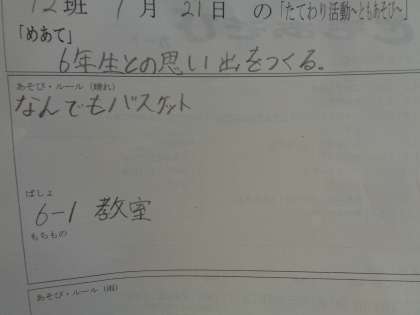 12班 1月21日の「たてわり活動~ともあそび~」
「めあて」
6年生との思い出をつくる。
あそび・ルール(晴れ)
なんでもバスケット
ばしょ
6-1 教室
もちもの
あそび・ルール(雨)